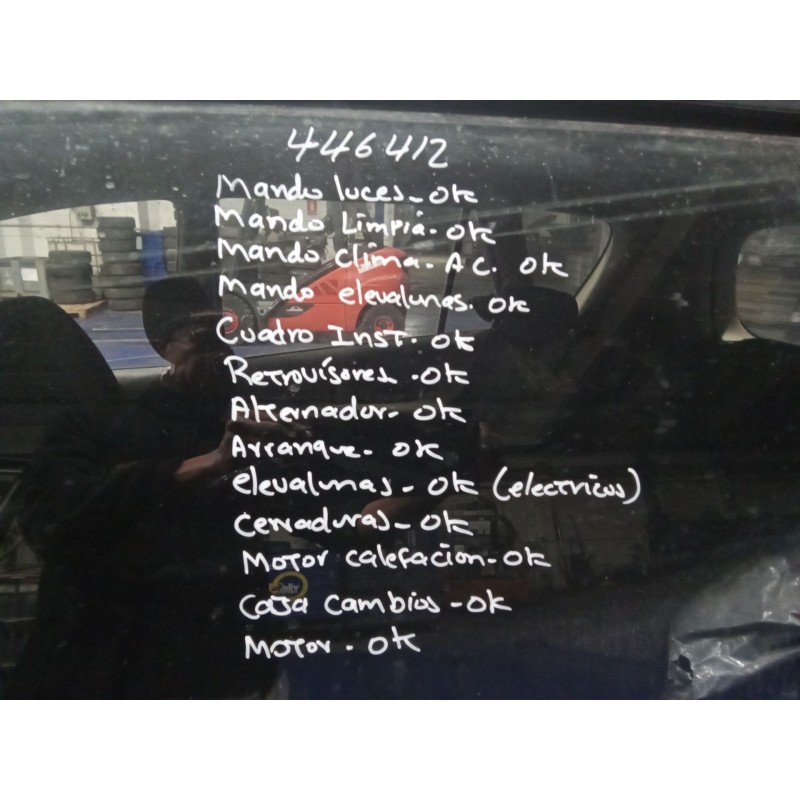 446412
Mando luces - OK
Mando Limpia - OK
Mando clima. A C. OK
Mando elevalunas. OK
Cuadro Inst. OK
Retrovisores . OK
Alternador - OK
Arranque - OK
elevalunas - OK (electricos)
Cerraduras - OK
Motor calefacion - OK
Caja Cambios - OK
Motor . OK